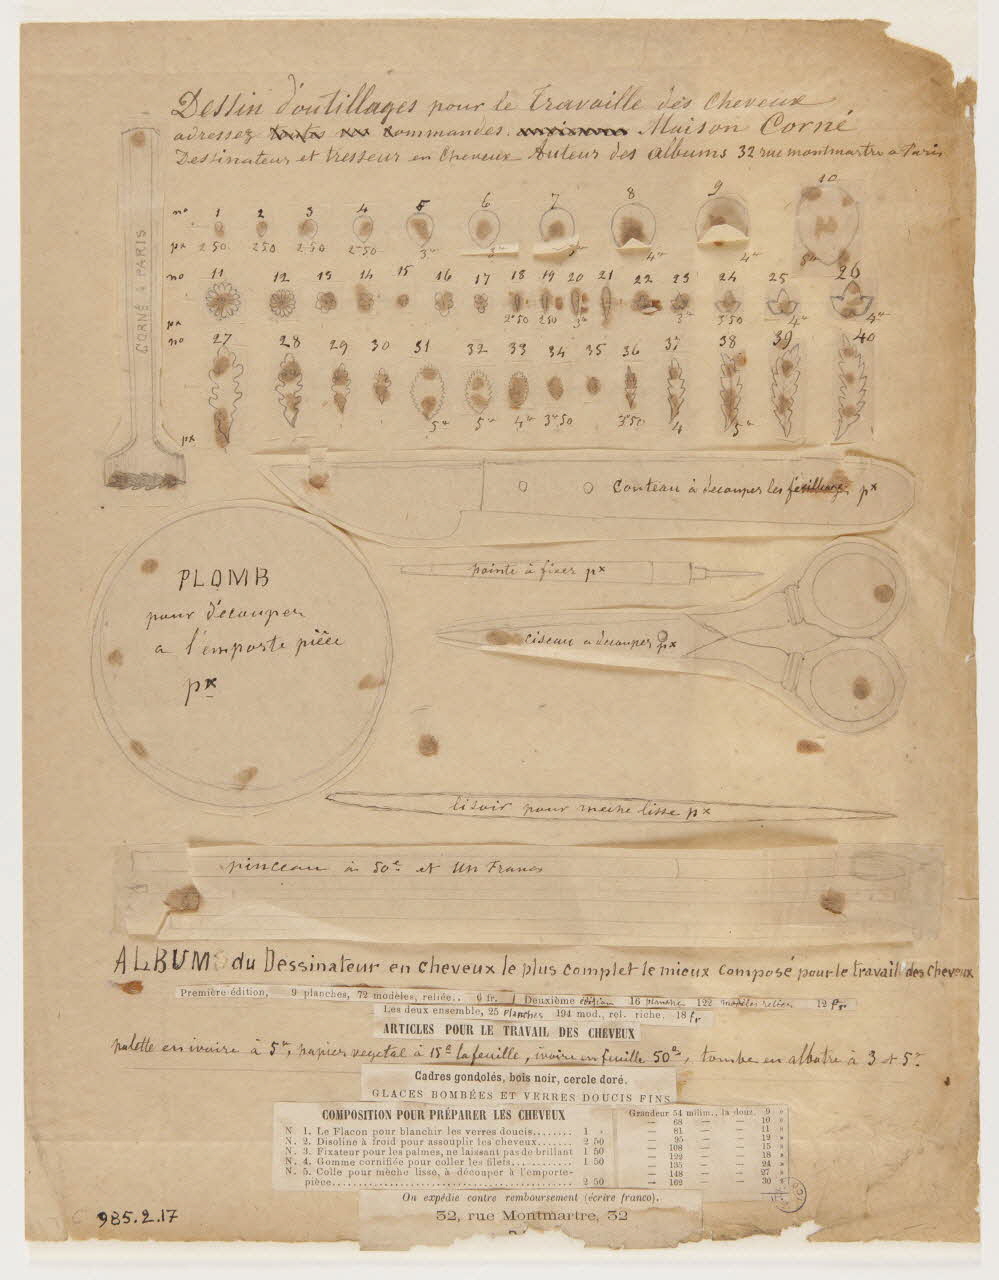 Dessin d'outillages pour le Travaille des cheveux
adressez commandes. Maison Corné
Dessinateur et tresseur en cheveux Auteur des albums 32 rue montmartre a Paris
CORNÉ A PARIS
no 1 2 3 4 5 6 7 8 9 10
px 2 50 2 50 2 50 2 50 3" 3" 3" 4" 4" 5"
no 11 12 13 14 15 16 17 18 19 20 21 22 23 24 25 26
px 2" 50 2 50 3" 3" 3 50 4" 4"
no 27 28 29 30 31 32 33 34 35 36 37 38 39 40
px 5" 5" 4" 3" 50 3" 50 4 5"
couteau à découper les feuillages px
PLOMB
pour découper
a l'emporte pièce
px
pointe à fixer px
ciseau a découper px
lisoir pour meche lisse px
pinceau à 50c et Un Franc
ALBUMS du Dessinateur en cheveux le plus complet le mieux composé pour le travail des cheveux
Première édition, 9 planches, 72 modèles, reliée.. 6 fr. / Deuxième édition 16 planche 122 modèles reliée 12 fr.
Les deux ensemble, 25 planches 194 mod., rel. riche. 18 fr
ARTICLES POUR LE TRAVAIL DES CHEVEUX
palette en ivoire à 5", papier vegetal à 15c la feuille, ivoire en feuille 50c, tombe en albatre à 3 et 5"
Cadres gondolés, bois noir, cercle doré.
GLACES BOMBÉES ET VERRES DOUCIS FINS
COMPOSITION POUR PRÉPARER LES CHEVEUX
N. 1. Le Flacon pour blanchir les verres doucis........ 1 »
N. 2. Disoline à froid pour assouplir les cheveux....... 2 50
N. 3. Fixateur pour les palmes, ne laissant pas de brillant 1 50
N. 4. Gomme cornifiée pour coller les filets............ 1 50
N. 5. Colle pour mèche lisse, à découper à l'emporte-
pièce........................................ 2 50
Grandeur 54 milim., la douz. 9 »
— 68 — — 10 »
— 81 — — 11 »
— 95 — — 12 »
— 108 — — 15 »
— 122 — — 18 »
— 135 — — 24 »
— 148 — — 27 »
— 162 — — 30 »
On expédie contre remboursement (écrire franco).
32, rue Montmartre, 32
985.2.17